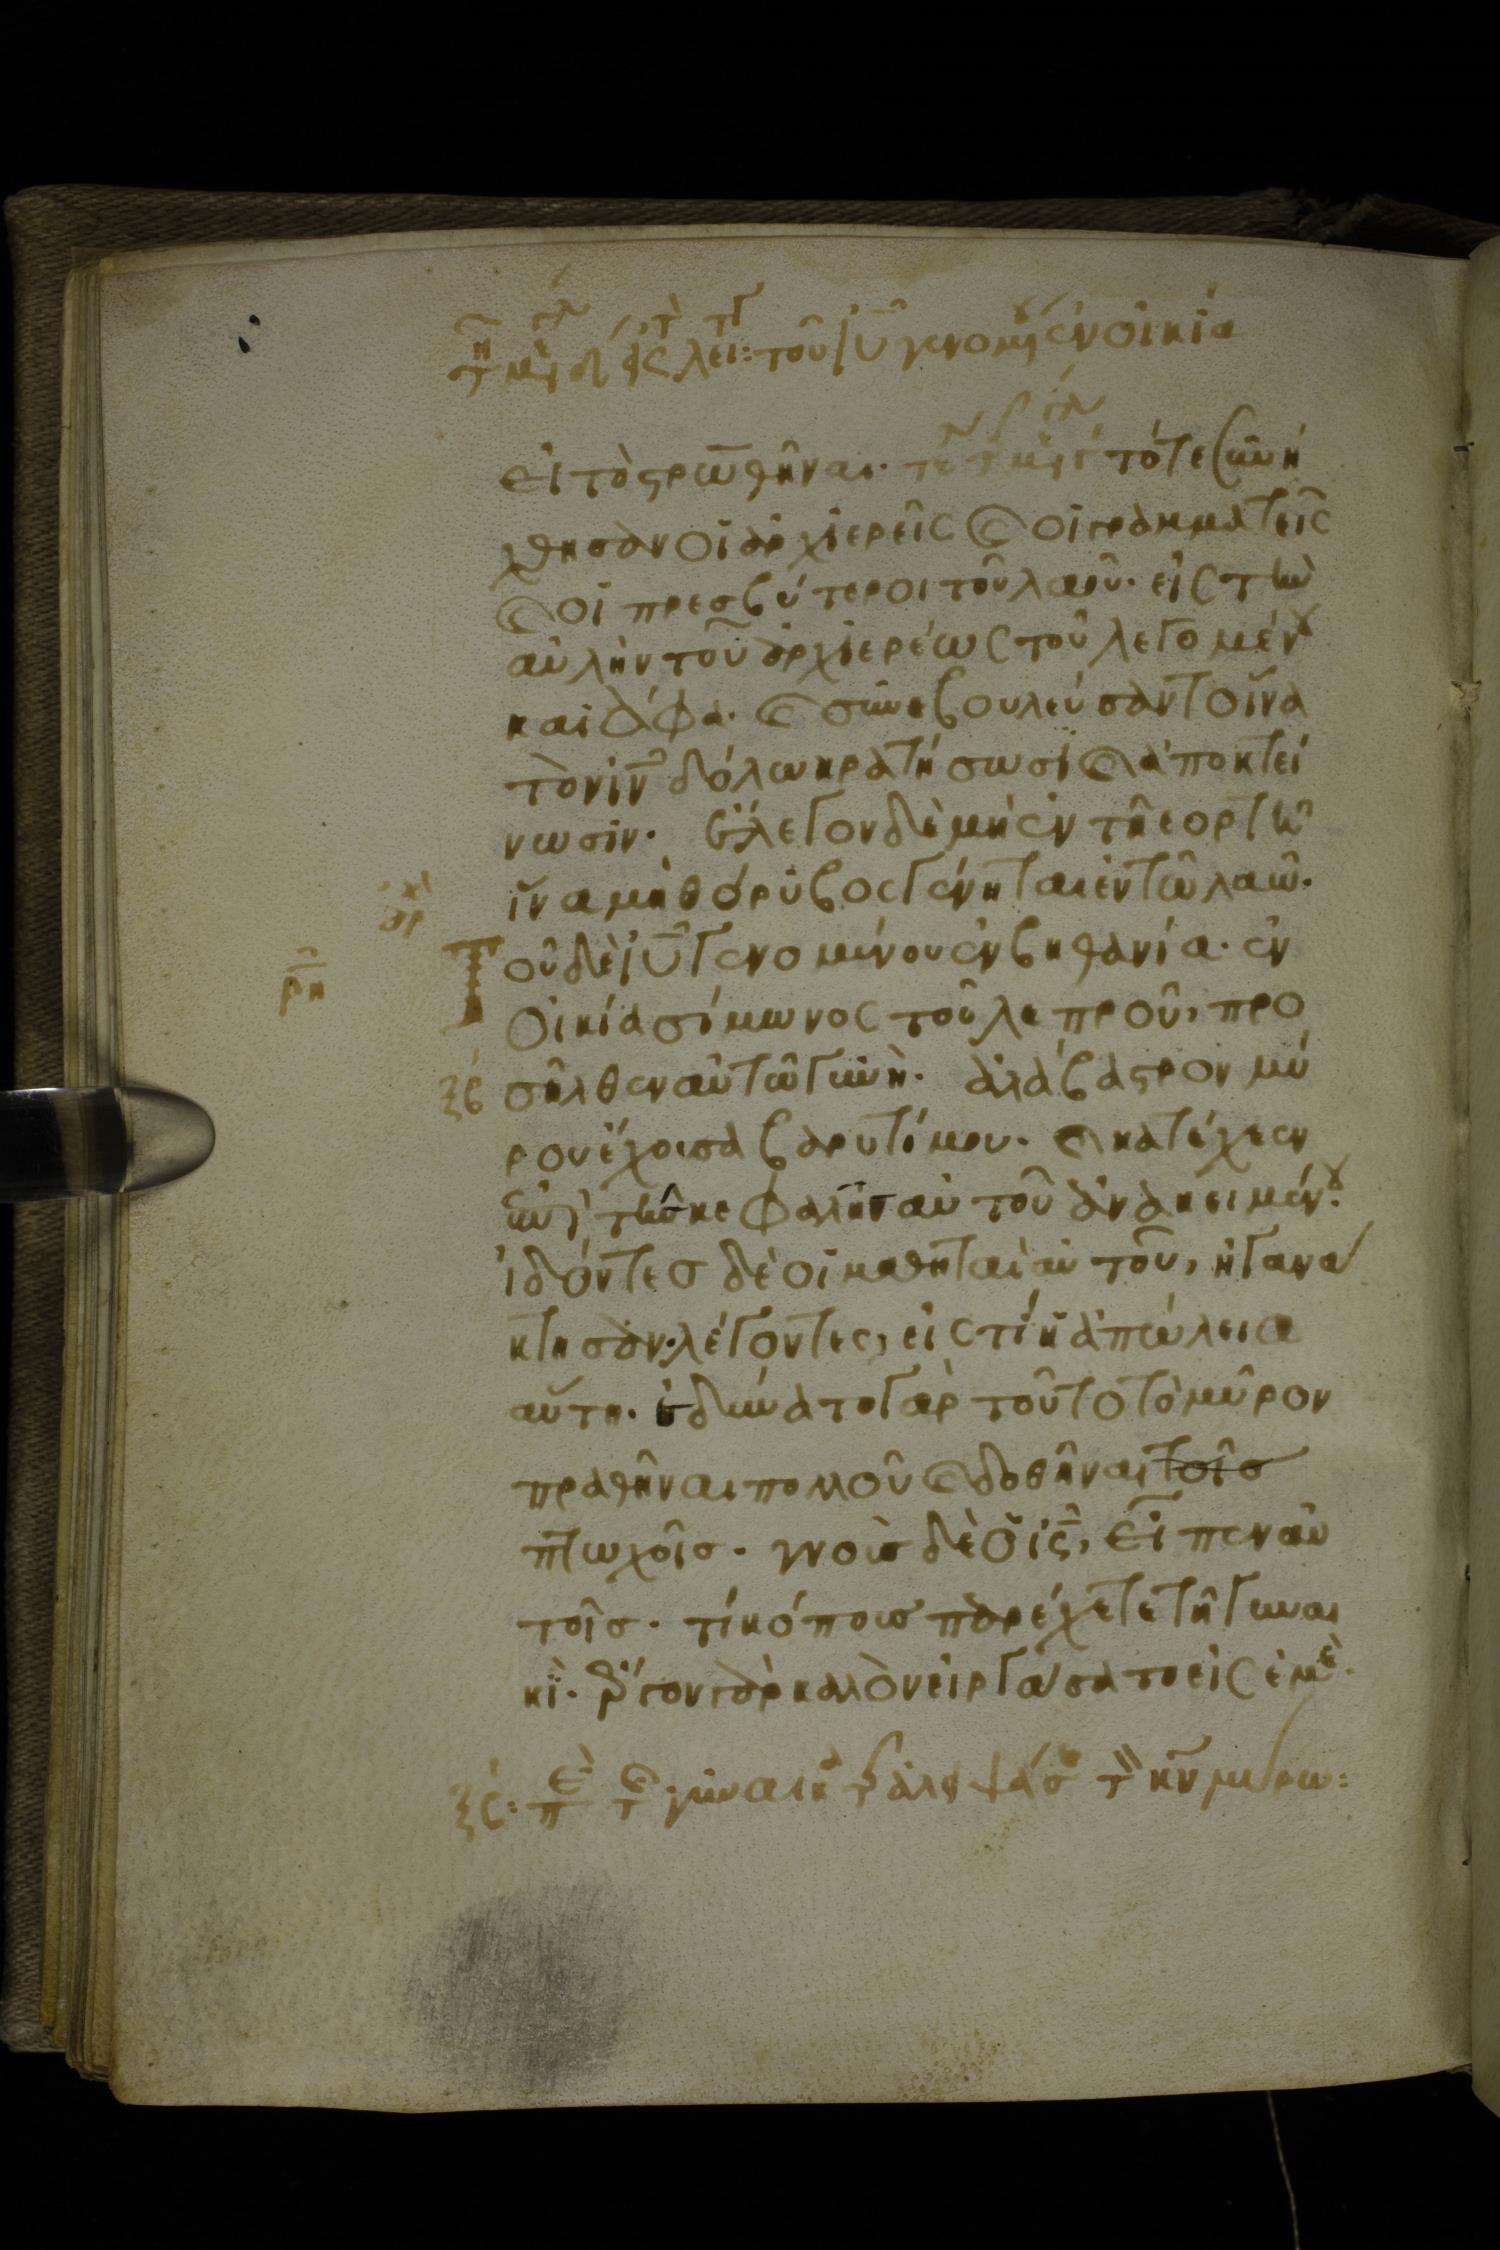 τοῦ ἰῦ γενομ ἐν οἰκία
εἰ τὸ σρωθῆναι. τότε συνή
χθησαν οἱ ἀρχιερεῖς καὶ οἱ γραμματεῖς
καὶ οἱ πρεσβύτεροι τοῦ λαοῦ. εἰς τὴν
αὐλὴν τοῦ ἀρχιερέως τοῦ λεγομένου
καϊάφα. καὶ συνεβουλεύσαντο ἵνα
τὸν ἰν δόλω κρατήσωσι καὶ ἀποκτεί
νωσιν. ἔλεγον δὲ μὴ ἐν τῆ εορτῆ
ἵνα μὴ θόρυβος γένηται ἐν τῶ λαῶ.
ἀρχ
ρη
Τοῦ δὲ ἰῦ γενομένου ἐν βηθανία. ἐν
οἰκία σίμωνος τοῦ λεπροῦ, προ
ξβ
σῆλθεν αὐτῶ γυνὴ. ἀλάβαστρον μύ
ρου ἔχουσα βαρυτίμου. καὶ κατέχεεν
ἐπὶ τὴν κεφαλὴν αὐτοῦ ἀνακειμένου.
ἰδόντες δὲ οἱ μαθηταὶ αὐτοῦ, ἠγανα
κτησαν λέγοντες, εἰς τί ἡ ἀπώλεια
αὕτη. ἐδύνατο γὰρ τοῦτο τὸ μῦρον
πραθῆναι πολλοῦ καὶ δοθῆναι τοῖς
πτωχοῖς. γνοὺς δὲ ὁ ἰς, εἶπεν αὐ
τοῖς. τί κόπους παρέχετε τῆ γυναι
κὶ. ἔργον γὰρ καλὸν εἰργάσατο εἰς ἐμὲ.
ξς: γυναικ ἀλειψάσ κν μύρω: